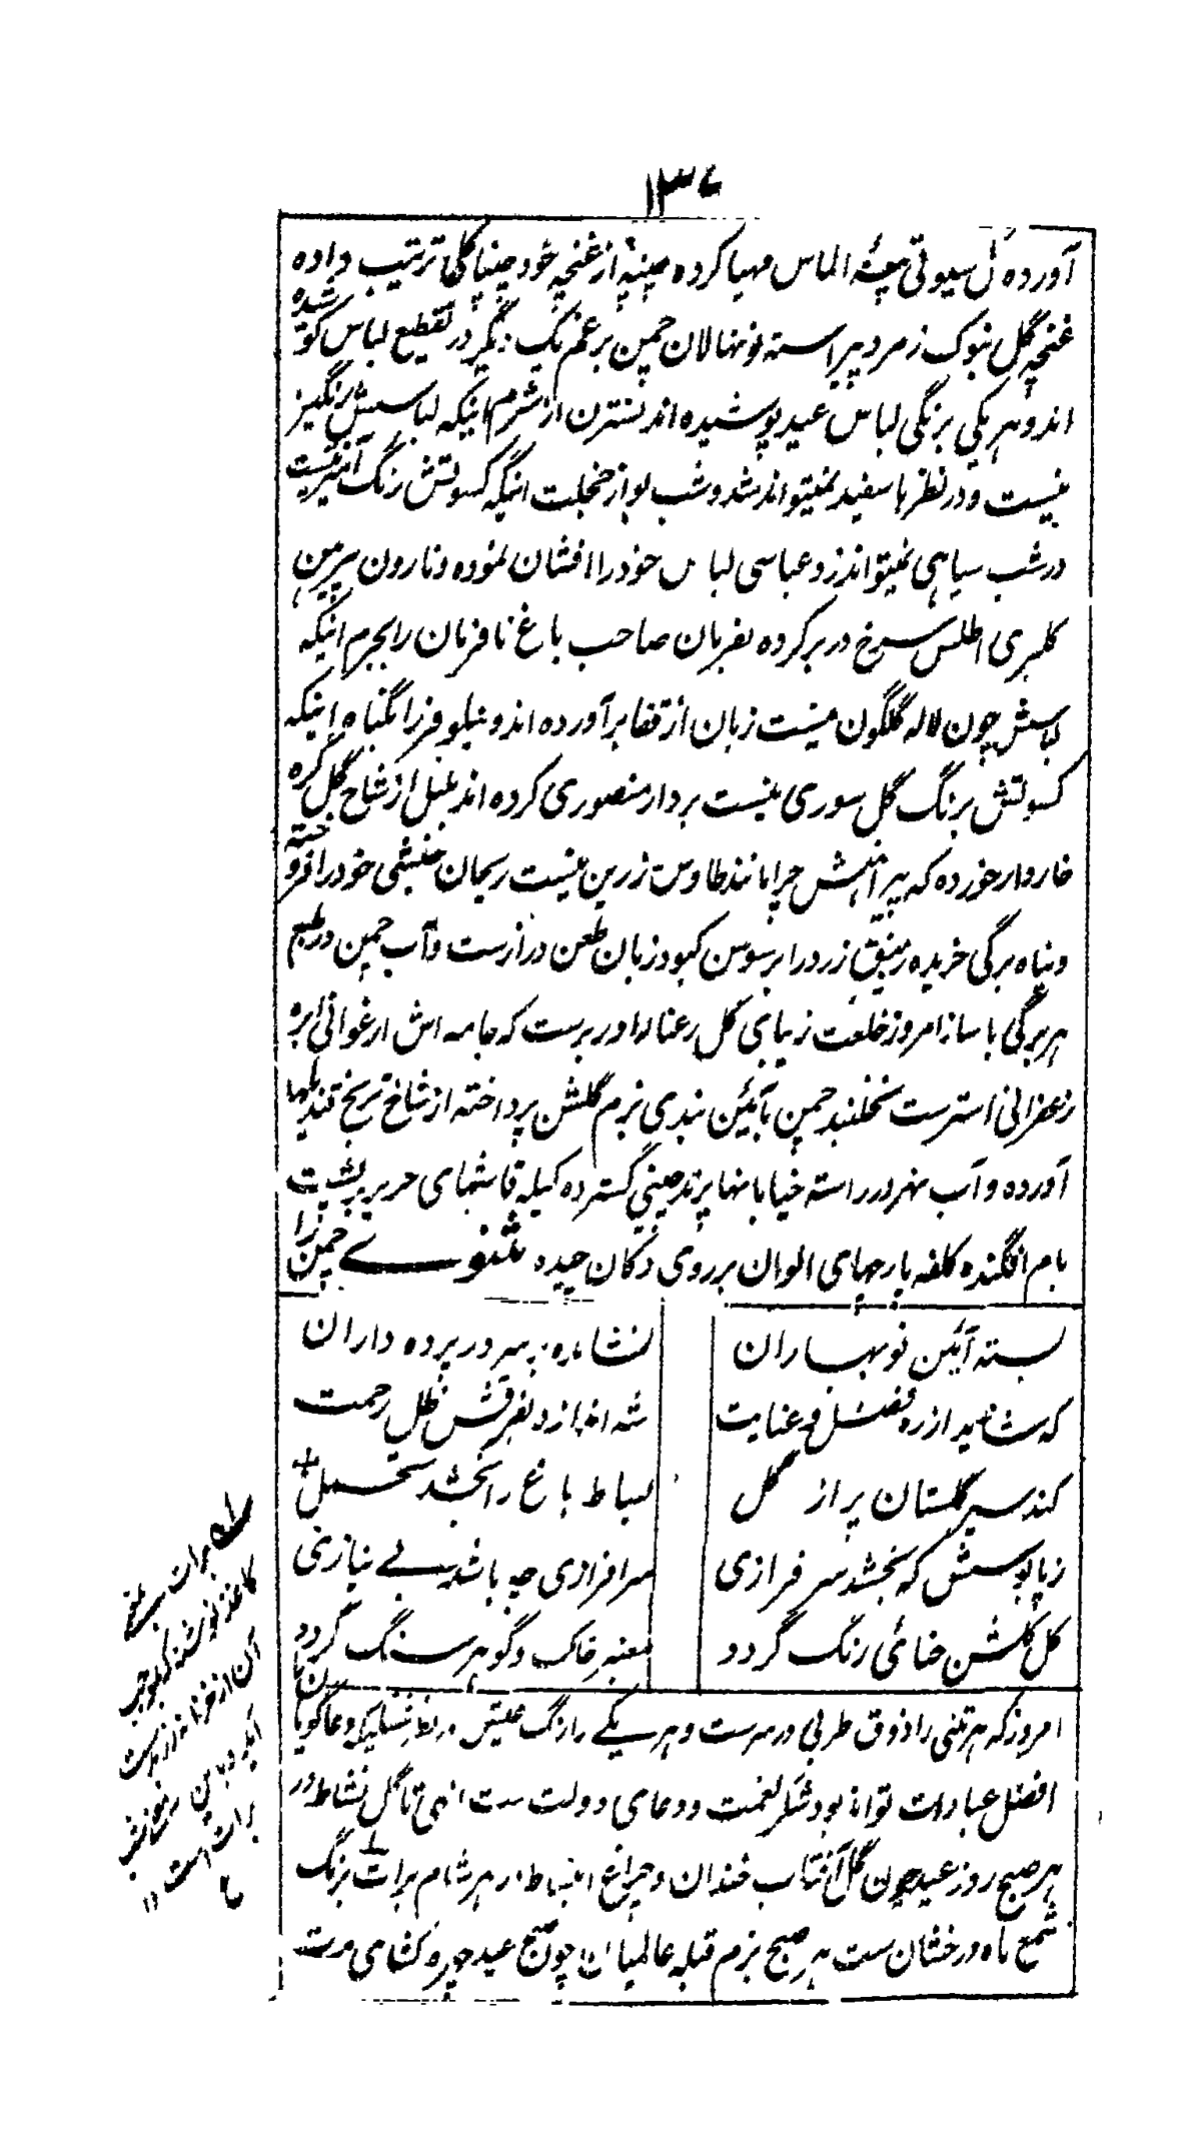 ۱۳۶
آورده گل سیوتی بیضهٔ الماس مهیا کرده چنپه از غنچه خود چنپاکلی ترتیب داده
غنچه گل بنوک زمرد پیراسته نونهالان چمن برعم یک دیگر در تقطیع لباس کوشیده
اند و هر یکی برنگی لباس عید پوشیده اند نسترن از شرم اینکه لباسش رنگین
نیست و در نظرها سفید نمیتواند شد و شب بو از خجلت اینکه کسوتش رنگ آمیز نیست
در شب سیاهی نمیتواند زد و عباسی لباس خود را افشان نموده و نارون پیرهن
گلبری اطلس سرخ در بر کرده بفرمان صاحب باغ نافرمان را بجرم اینکه
لباسش چون لاله گلگون نیست زبان از قفا برآورده اند و نیلوفر را بگناه اینکه
کسوتش برنگ گل سوری نیست بردار منصوری کرده اند بلبل از شاخ گل گره
خاردار خورده که پیراهنش چرا مانند طاوس زرین نیست ریحان حبشی خود را فروخته
و پناه برگی خریده زنبق زرد را بر سوسن کبود زبان طعن دراز ست و آب چمن در طبع
هر برگی با ساز امروز خلعت زیبای گل رعنا را در بر ست که جامه اش ارغوانی ابره
زعفرانی استرست نخلبند چمن بآئین بندی بزم گلشن پرداخته از شاخ ترنج قندیلها
آورده و آب نهر در راسته خیابانها پرند چینی گسترده کیله قاشهای حریر بر پشت
بام افگنده کلغه پارچهای الوان بر روی دکان چیده مثنوی چمن را
بسته آئین نوبهاران نشانده بر سر در پرده داران
که شاید از ره فضل و عنایت شه اندازد بفرقش ظل رحمت
کند سیر گلستان پر از گل بساط باغ را بخشد تجمل
ز پابوسش که بخشد سرفرازی سرافرازی چه باشد بی نیازی
گل گلشن حنائی رنگ گردد معنبر خاک و گوهر سنگ گردد
امروز که هر تنی را ذوق طربی در سرست و هر یکی را رنگ عیش در نظر دعاگویان
افضل عبادات تواند بود شکر نعمت و دعای دولت ست الهی تا گل نشاط در
هر صبح روز عید چون گل آفتاب خندان و چراغ انبساط در هر شام برات برنگ
شمع ماه درخشان ست هر صبح بزم قبله عالمیان چون صبح عید چهره کشای مسرت
برات بمعنی
کاغذ نوشته که بموجب
آن از خزانه زر بدست
آید و
برات است ۱۲